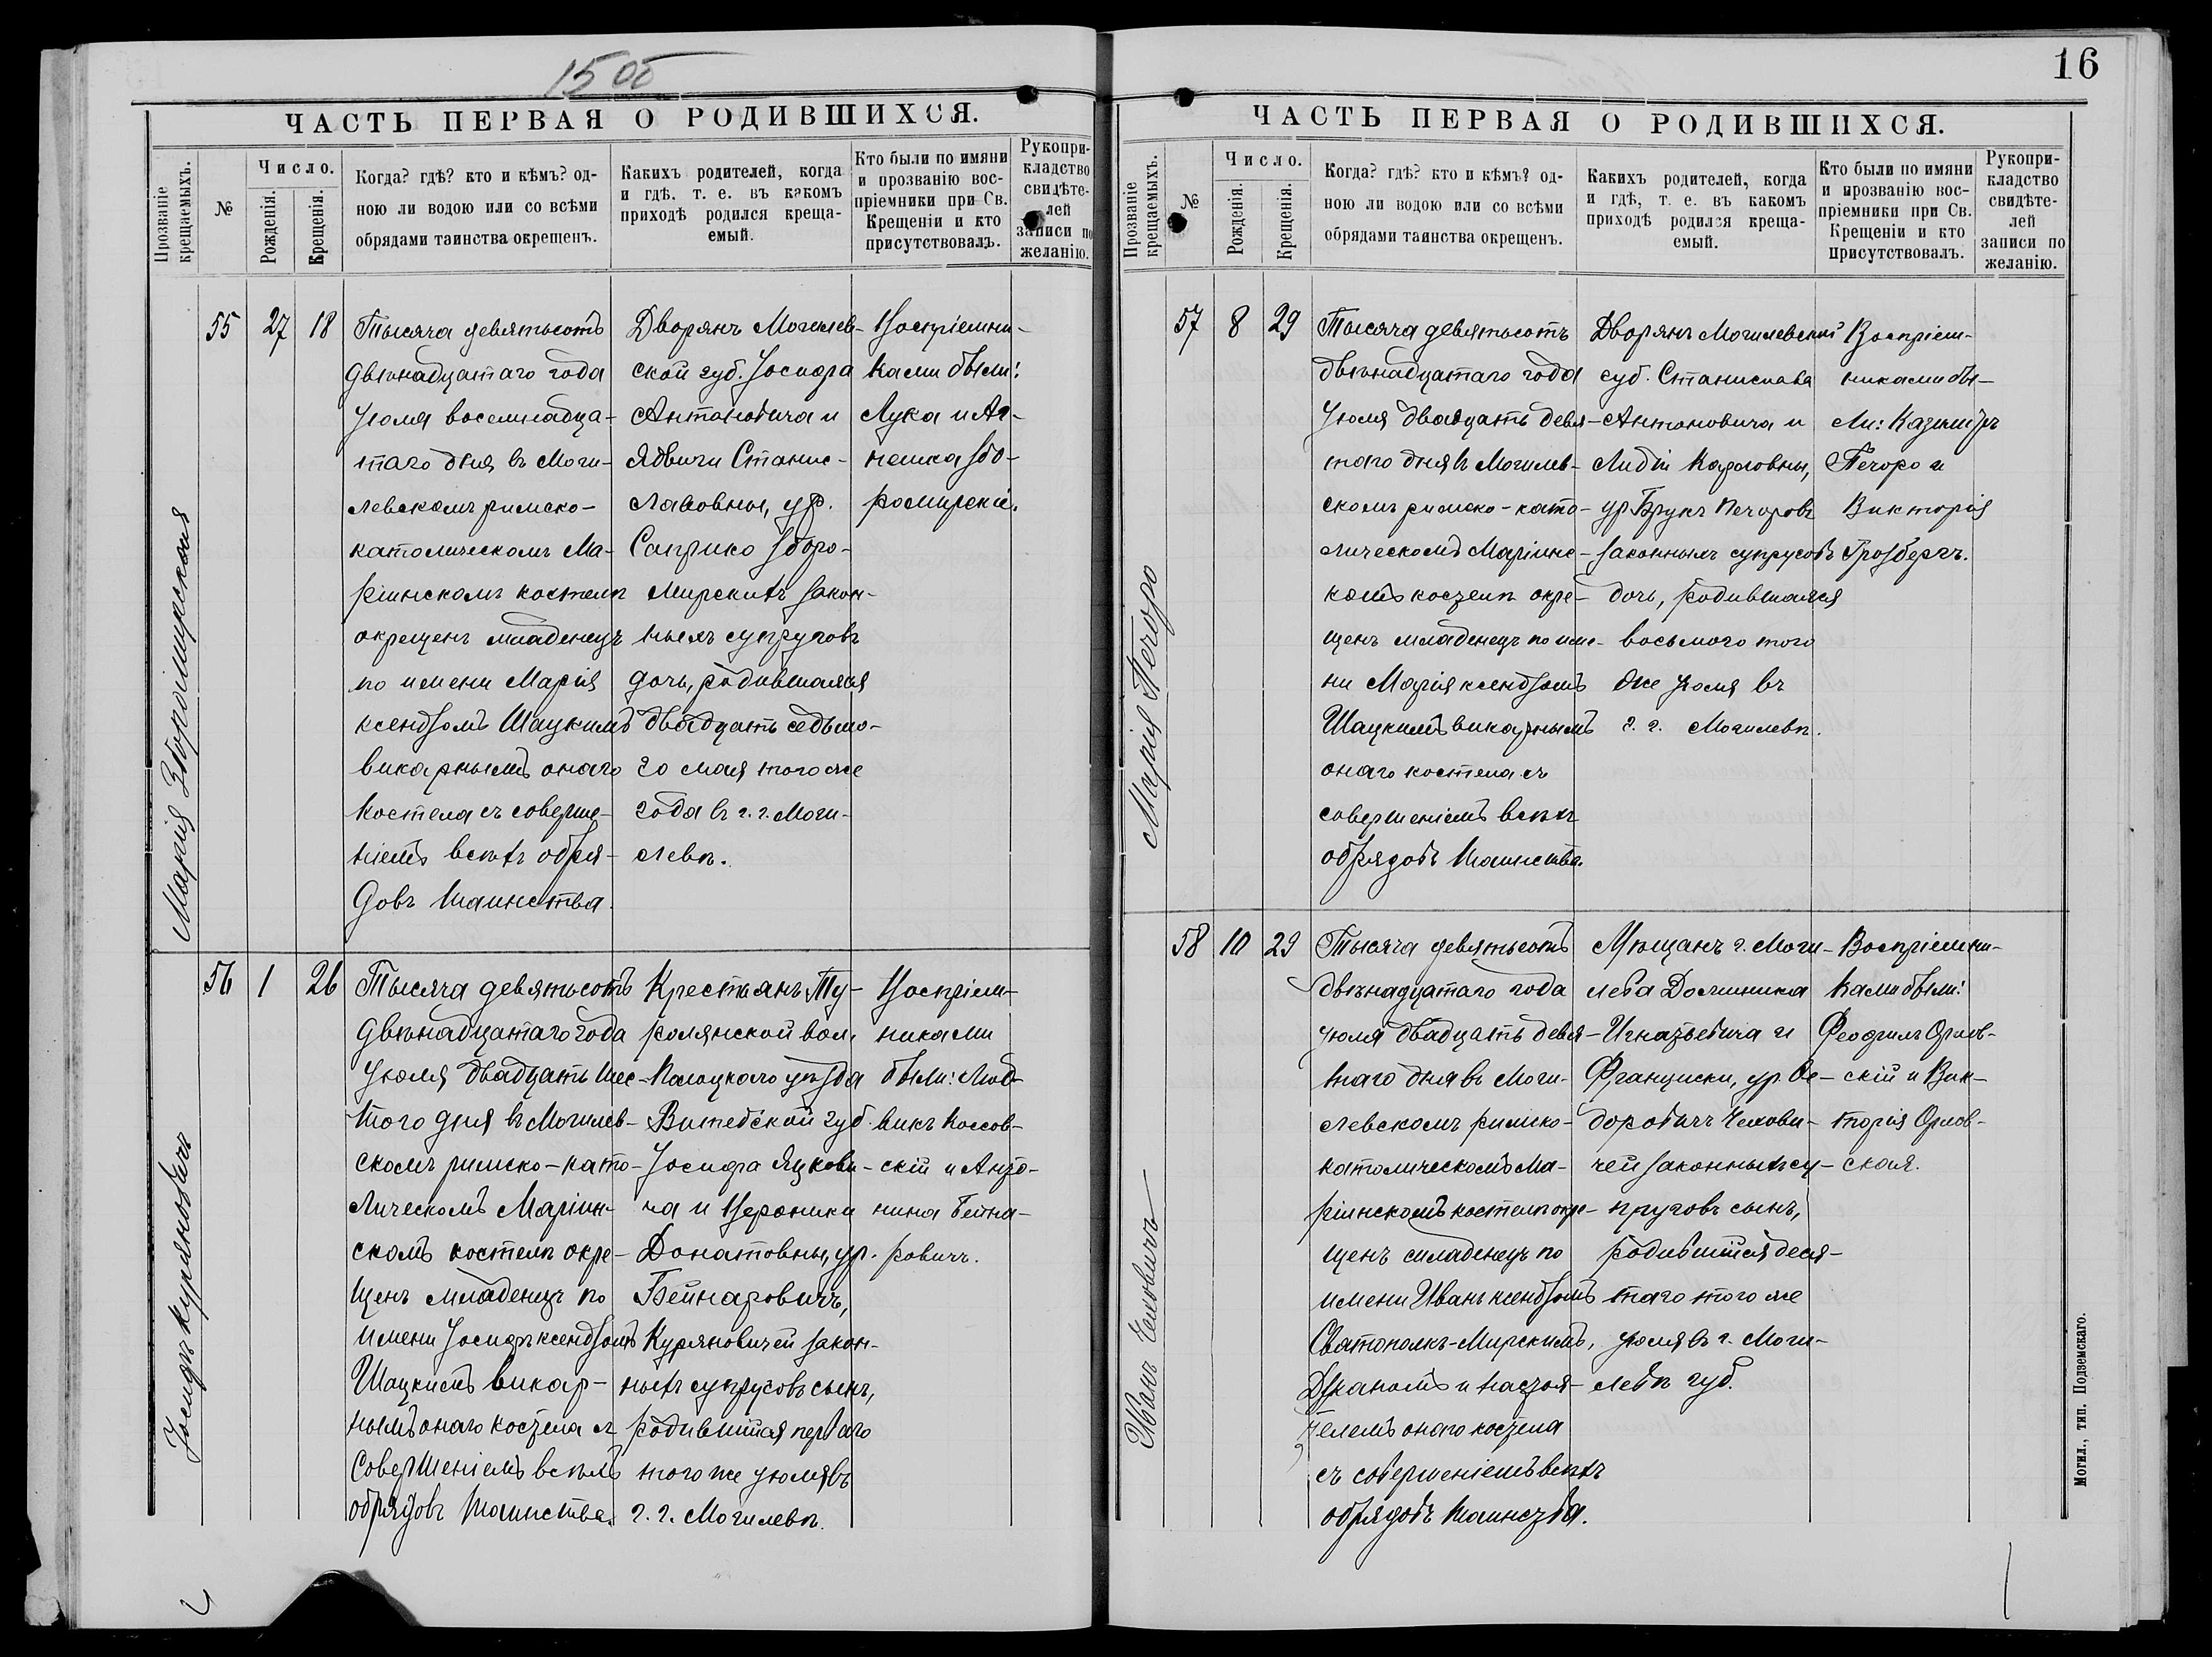 1505
ЧАСТЬ ПЕРВАЯ О РОДИВШИХСЯ.
Прозваніе крещаемыхъ.
№
Число.
Рожденія.
Крещенія.
Когда? гдѣ? кто и кѣмъ? од-
ною ли водою или со всѣми
обрядами таинства окрещенъ.
Какихъ родителей, когда
и гдѣ, т. е. въ какомъ
приходѣ родился креща-
емый.
Кто были по имяни
и прозванію вос-
пріемники при Св.
Крещеніи и кто
присутствовалъ.
Рукопри-
кладство
свидѣте-
лей
записи по
желанію.
Марія Збороміирская
55 27 18
Тысяча девятьсотъ
двѣнадцатаго года
Іюля восемнадца-
таго дня въ Моги-
левскомъ римско-
католическомъ Ма-
ріинскомъ костелѣ
окрещенъ младенецъ
по имени Марія
ксендзомъ Шацкимъ
викарнымъ онаго
костела съ соверше-
ніемъ всѣхъ обря-
довъ таинства.
Дворянъ Могилев-
ской губ. Іосифа
Антоновича и
Ядвиги Станис-
лавовны, ур.
Саприко Зборо-
мирскихъ закон-
ныхъ супруговъ
дочь, родившаяся
двадцать седьмо-
го мая того же
года въ г. г. Моги-
левѣ.
Воспріемни-
ками были:
Лука и Аг-
нешка Збо-
ромирскіе.
Іосифъ Куряновичъ
56 1 26
Тысяча девятьсотъ
двѣнадцатаго года
Іюля двадцать шес-
того дня въ Могилев-
скомъ римско-като-
лическомъ Маріин-
скомъ костелѣ окре-
щенъ младенецъ по
имени Іосифъ ксендзомъ
Шацкимъ викар-
нымъ онаго костела съ
совершеніемъ всѣхъ
обрядовъ таинства.
Крестьянъ Ту-
ромлянской вол.
Полоцкаго уѣзда
Витебской губ.
Іосифа Яцкови-
ча и Вероники
Донатовны, ур.
Бейнаровичъ,
Куряновичей закон-
ныхъ супруговъ сынъ,
родившійся перваго
того же Іюля въ
г. г. Могилевѣ.
Воспріем-
никами
были: Люд-
викъ Коссов-
скій и Анто-
нина Бейна-
ровичъ.
16
ЧАСТЬ ПЕРВАЯ О РОДИВШИХСЯ.
Прозваніе крещаемыхъ.
№
Число.
Рожденія.
Крещенія.
Когда? гдѣ? кто и кѣмъ? од-
ною ли водою или со всѣми
обрядами таинства окрещенъ.
Какихъ родителей, когда
и гдѣ, т. е. въ какомъ
приходѣ родился креща-
емый.
Кто были по имяни
и прозванію вос-
пріемники при Св.
Крещеніи и кто
присутствовалъ.
Рукопри-
кладство
свидѣте-
лей
записи по
желанію.
Марія Печоро
57 8 29
Тысяча девятьсотъ
двѣнадцатаго года
Іюля двадцать девя-
таго дня въ Могилев-
скомъ римско-като-
лическомъ Маріинс-
комъ костелѣ окре-
щенъ младенецъ по име-
ни Марія ксендзомъ
Шацкимъ викарнымъ
онаго костела съ
совершеніемъ всѣхъ
обрядовъ таинства.
Дворянъ Могилевской
губ. Станислава
Антоновича и
Лидіи Карловны,
ур. Брукъ Печоровъ
законныхъ супруговъ
дочь, родившаяся
восьмого того
же Іюля въ
г. г. Могилевѣ.
Воспріем-
никами бы-
ли: Казиміръ
Печоро и
Викторія
Грозбергъ.
Иванъ Человичъ
58 10 29
Тысяча девятьсотъ
двѣнадцатаго года
Іюля двадцать девя-
таго дня въ Моги-
левскомъ римско-
католическомъ Ма-
ріинскомъ костелѣ окре-
щенъ младенецъ по
имени Иванъ ксендзомъ
Святополкъ-Мирскимъ,
Деканомъ и настоя-
телемъ онаго костела
съ совершеніемъ всѣхъ
обрядовъ таинства.
Мѣщанъ г. Моги-
лева Доминика
Игнатьевича и
Франциски, ур. Ѳе-
доровичъ Челови-
чей законныхъ су-
пруговъ сынъ,
родившійся деся-
таго того же
Іюля въ г. Моги-
левѣ губ.
Воспріемни-
ками были:
Феофилъ Орлов-
скій и Вик-
торія Орлов-
ская.
Могил., тип. Подземскаго.